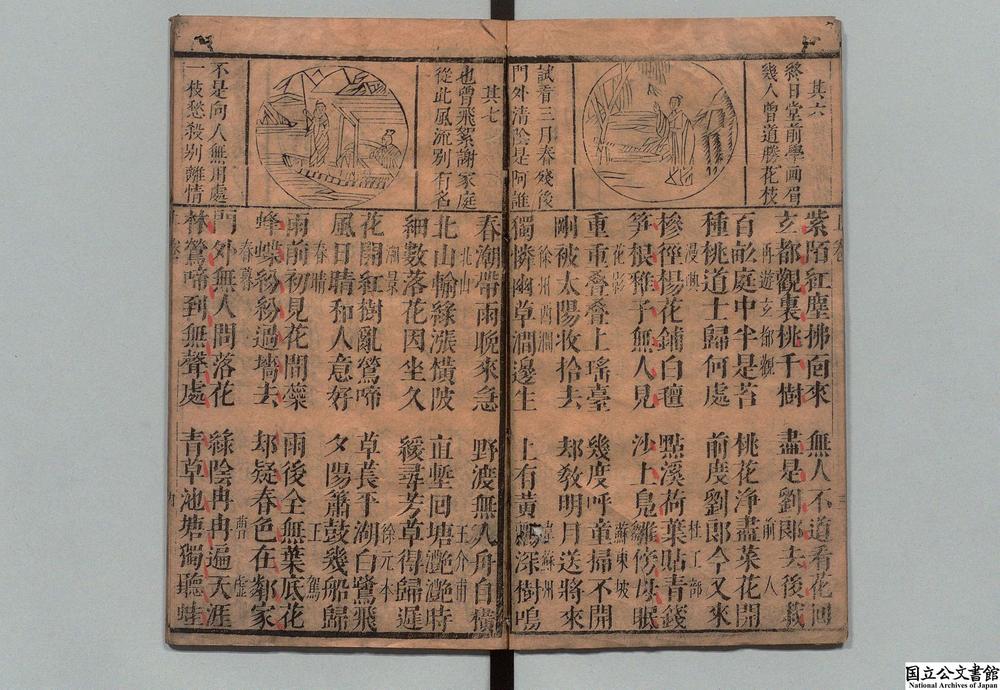 其六
終日堂前學画眉
幾人曾道勝花枝
試看三月春殘後
門外清陰是阿誰
紫陌紅塵拂面來 無人不道看花回
玄都觀裏桃千樹 盡是劉郎去後栽
再遊玄都觀 前人
百畝庭中半是苔 桃花淨盡菜花開
種桃道士歸何處 前度劉郎今又來
漫興 杜工部
糝徑楊花鋪白氊 點溪荷葉貼青錢
笋根稚子無人見 沙上鳧雛傍母眠
花影 蘇東坡
重重叠叠上瑤臺 幾度呼童掃不開
剛被太陽收拾去 却教明月送將來
徐州西澗 韋蘇州
獨憐幽草澗邊生 上有黃鸝深樹鳴
其七
也曾飛絮謝家庭
從此風流別有名
不是向人無用處
一枝愁殺別離情
春潮帶雨晚來急 野渡無人舟自橫
北山 王介甫
北山輸緑漲橫陂 直塹回塘灧灧時
細數落花因坐久 緩尋芳草得歸遲
湖景 徐元本
花開紅樹亂鶯啼 草長平湖白鷺飛
風日晴和人意好 夕陽簫鼓幾船歸
春晴 王駕
雨前初見花間蘂 雨後全無葉底花
蜂蝶紛紛過墻去 却疑春色在鄰家
春暮 曹虛
門外無人問落花 緑陰冉冉遍天涯
林鶯啼到無聲處 青草池塘獨聽蛙
国立公文書館
National Archives of Japan